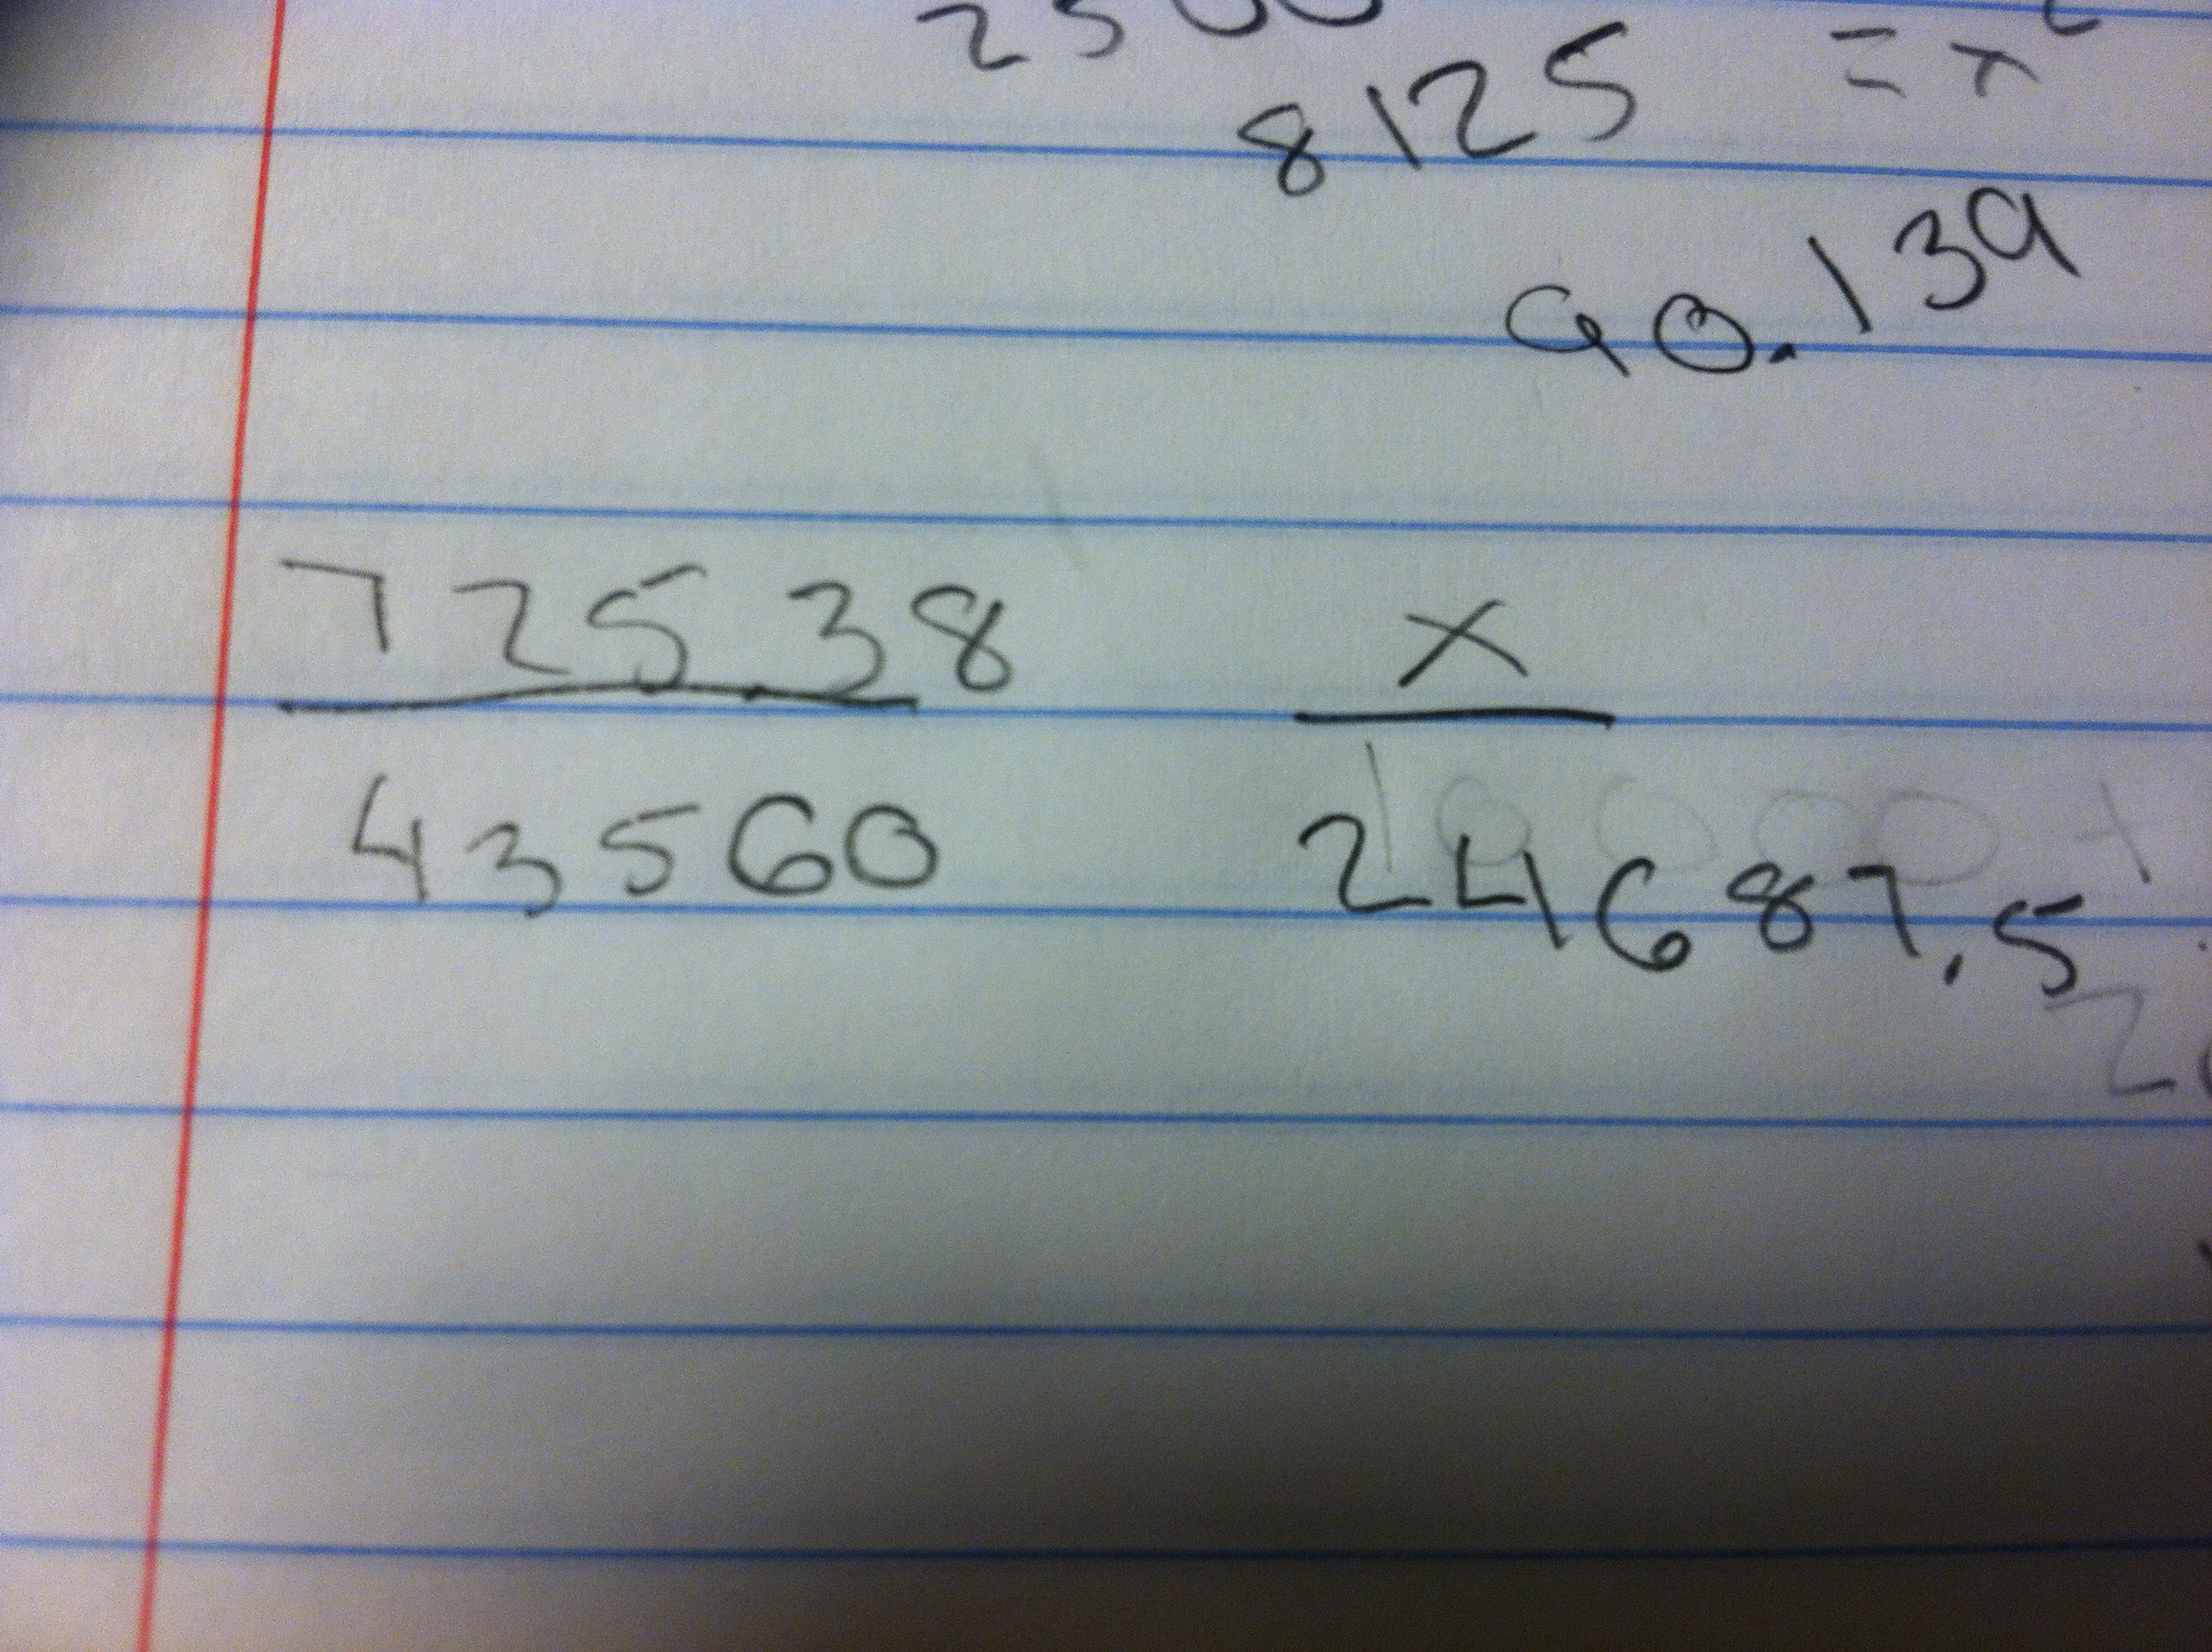 2500
8125 = x²
90.139
725.38 x
43560 24687.5